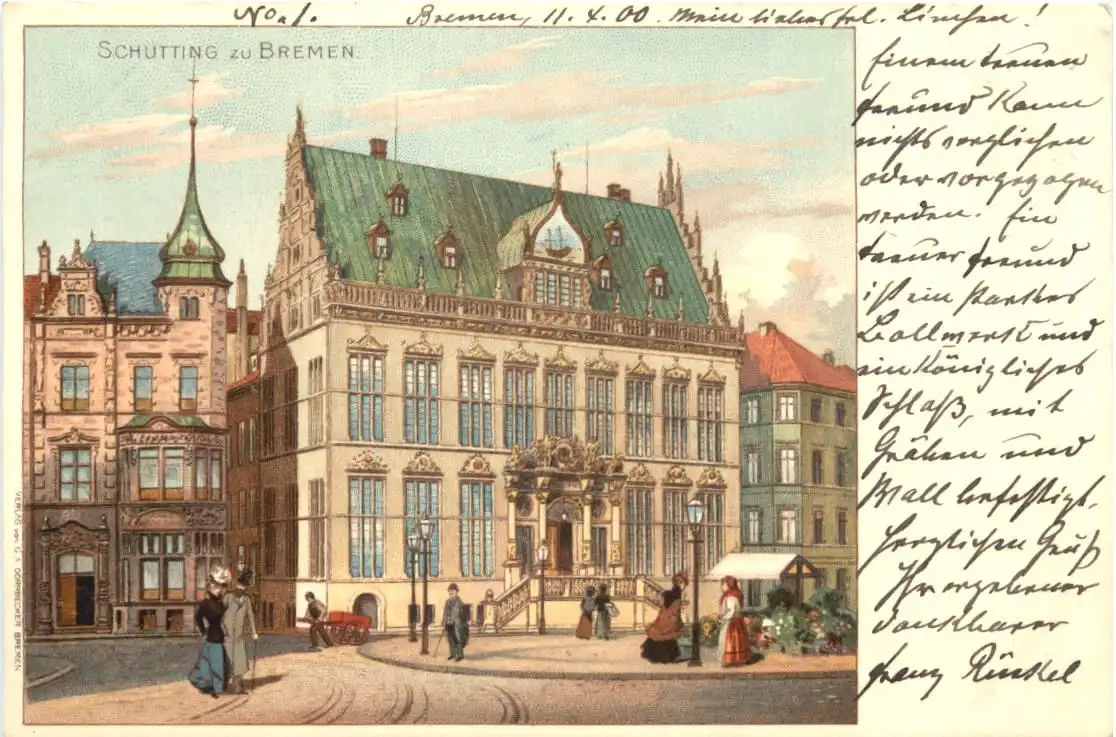 No. 1. Bremen, 11.4.00. Mein liebes Frl. Linchen!
SCHÜTTING ZU BREMEN.
Einem treuen
Freund kann
nichts verglichen
oder vorgezogen
werden. Ein
treuer Freund
ist ein starkes
Bollwerk und
ein königliches
Schloß, mit
Gräben und
Wall befestigt.
Herzlichen Gruß
Ihr ergebener
dankbarer
Franz Rückel
VERLAG von G. v. DÖRNBECKER BREMEN